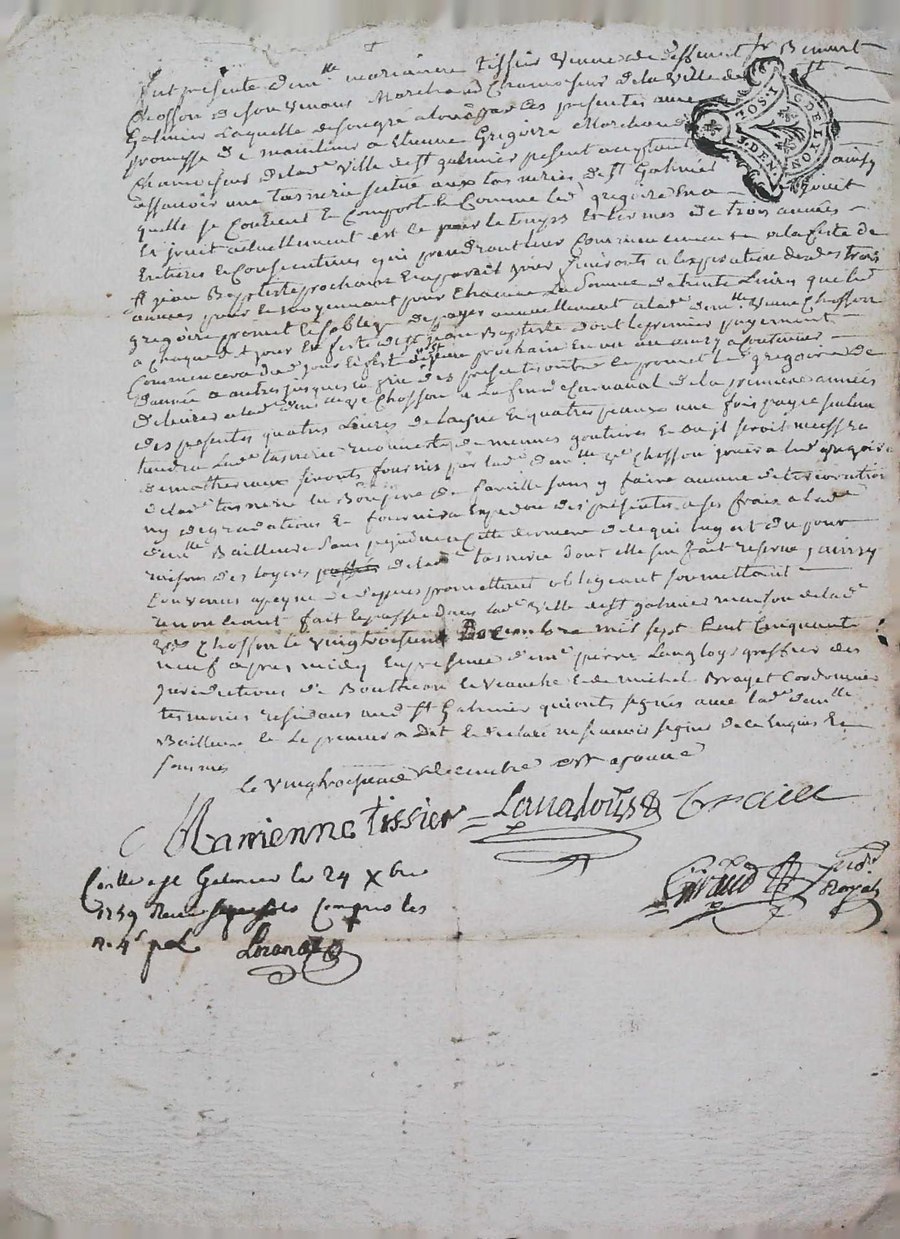 Fut presente dem.lle marianne tissier Veuve de deffunt Sr Benoit
Chosson de son vivant Marchand Chamoiseur de la Ville de St
Galmier Laquelle de son gré a loué par ces presentes avec
promesse de maintenir a Etienne Grégoire Marchand
Chamoiseur de lad. Ville de St galmier present acceptant
assavoir une tannerie scitue aux tanneries de St Galmier ainsy
quelle se Contient & Comporte & Comme led. gregoire en a jouit
Et jouit actuellement et ce pour le temps Et termes de trois années
Entieres & Consecutives qui prendront leur Commencement a la feste de
St jean Baptiste prochaine a l'expiration desd. trois
années pour le moyennant pour Chacune La Somme de trente Livres que led.
gregoire promet & s'oblige de payer annuellement a lad. dem.lle Veuve Chosson
a Chaque jour Et feste de St jean Baptiste dont le premier payement
Commencera prochain En un an
d'année a autre jusques a fin des presentes outre ce promet led. gregoire de
delivrer a lad. Chosson a La fin du Carnaval de la premiere année
des presentes quatre Livres de laine En quatre peaux une fois payé seulement
tiendra Lad. tannerie de menues goutieres & ou il seroit necessaire
des matheriaux seronts fournis par lad. dem.lle Chosson jouira led. gregoire
de lad. tannerie En Bon pere de famille sans y faire aucune deterioration
ny degradations & fournira Expedition des presentes a ses frais a lad.
dem.lle Bailleuse Sans prejudice a cette derniere de ce qui luy est du pour
raisons des loyers de lad. tannerie dont elle se fait reserve, ainsy
Convenus a peyne de depens promettant obligeant soumettant
renonceant fait & passé dans lad. Ville de St galmier maison de lad.
Chosson le Vingtroisieme Decembre mil sept Cent Cinquante
neuf apres midy En presence d'em. pierre Langloys greffier des
jurisdictions de Boutheon la Vauche & de michel Brayet Cordonnier
tesmoins residans aud. St Galmier qui onts signés avec lad. dem.lle
Bailleuse & Le preneur a Dit & declaré ne scavoir signer de ce Enquis &
sommés
Le Vingtroisieme decembre
Marienne tissier Langlois
Giraud No.re Royal
Conllé a St Galmier le 24 Xbre
1759 Reçu Compris les
n. 4s. p. L.